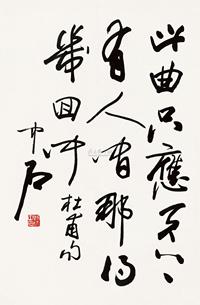 此曲只應天上
有人间那得
幾回闻杜甫句
中石